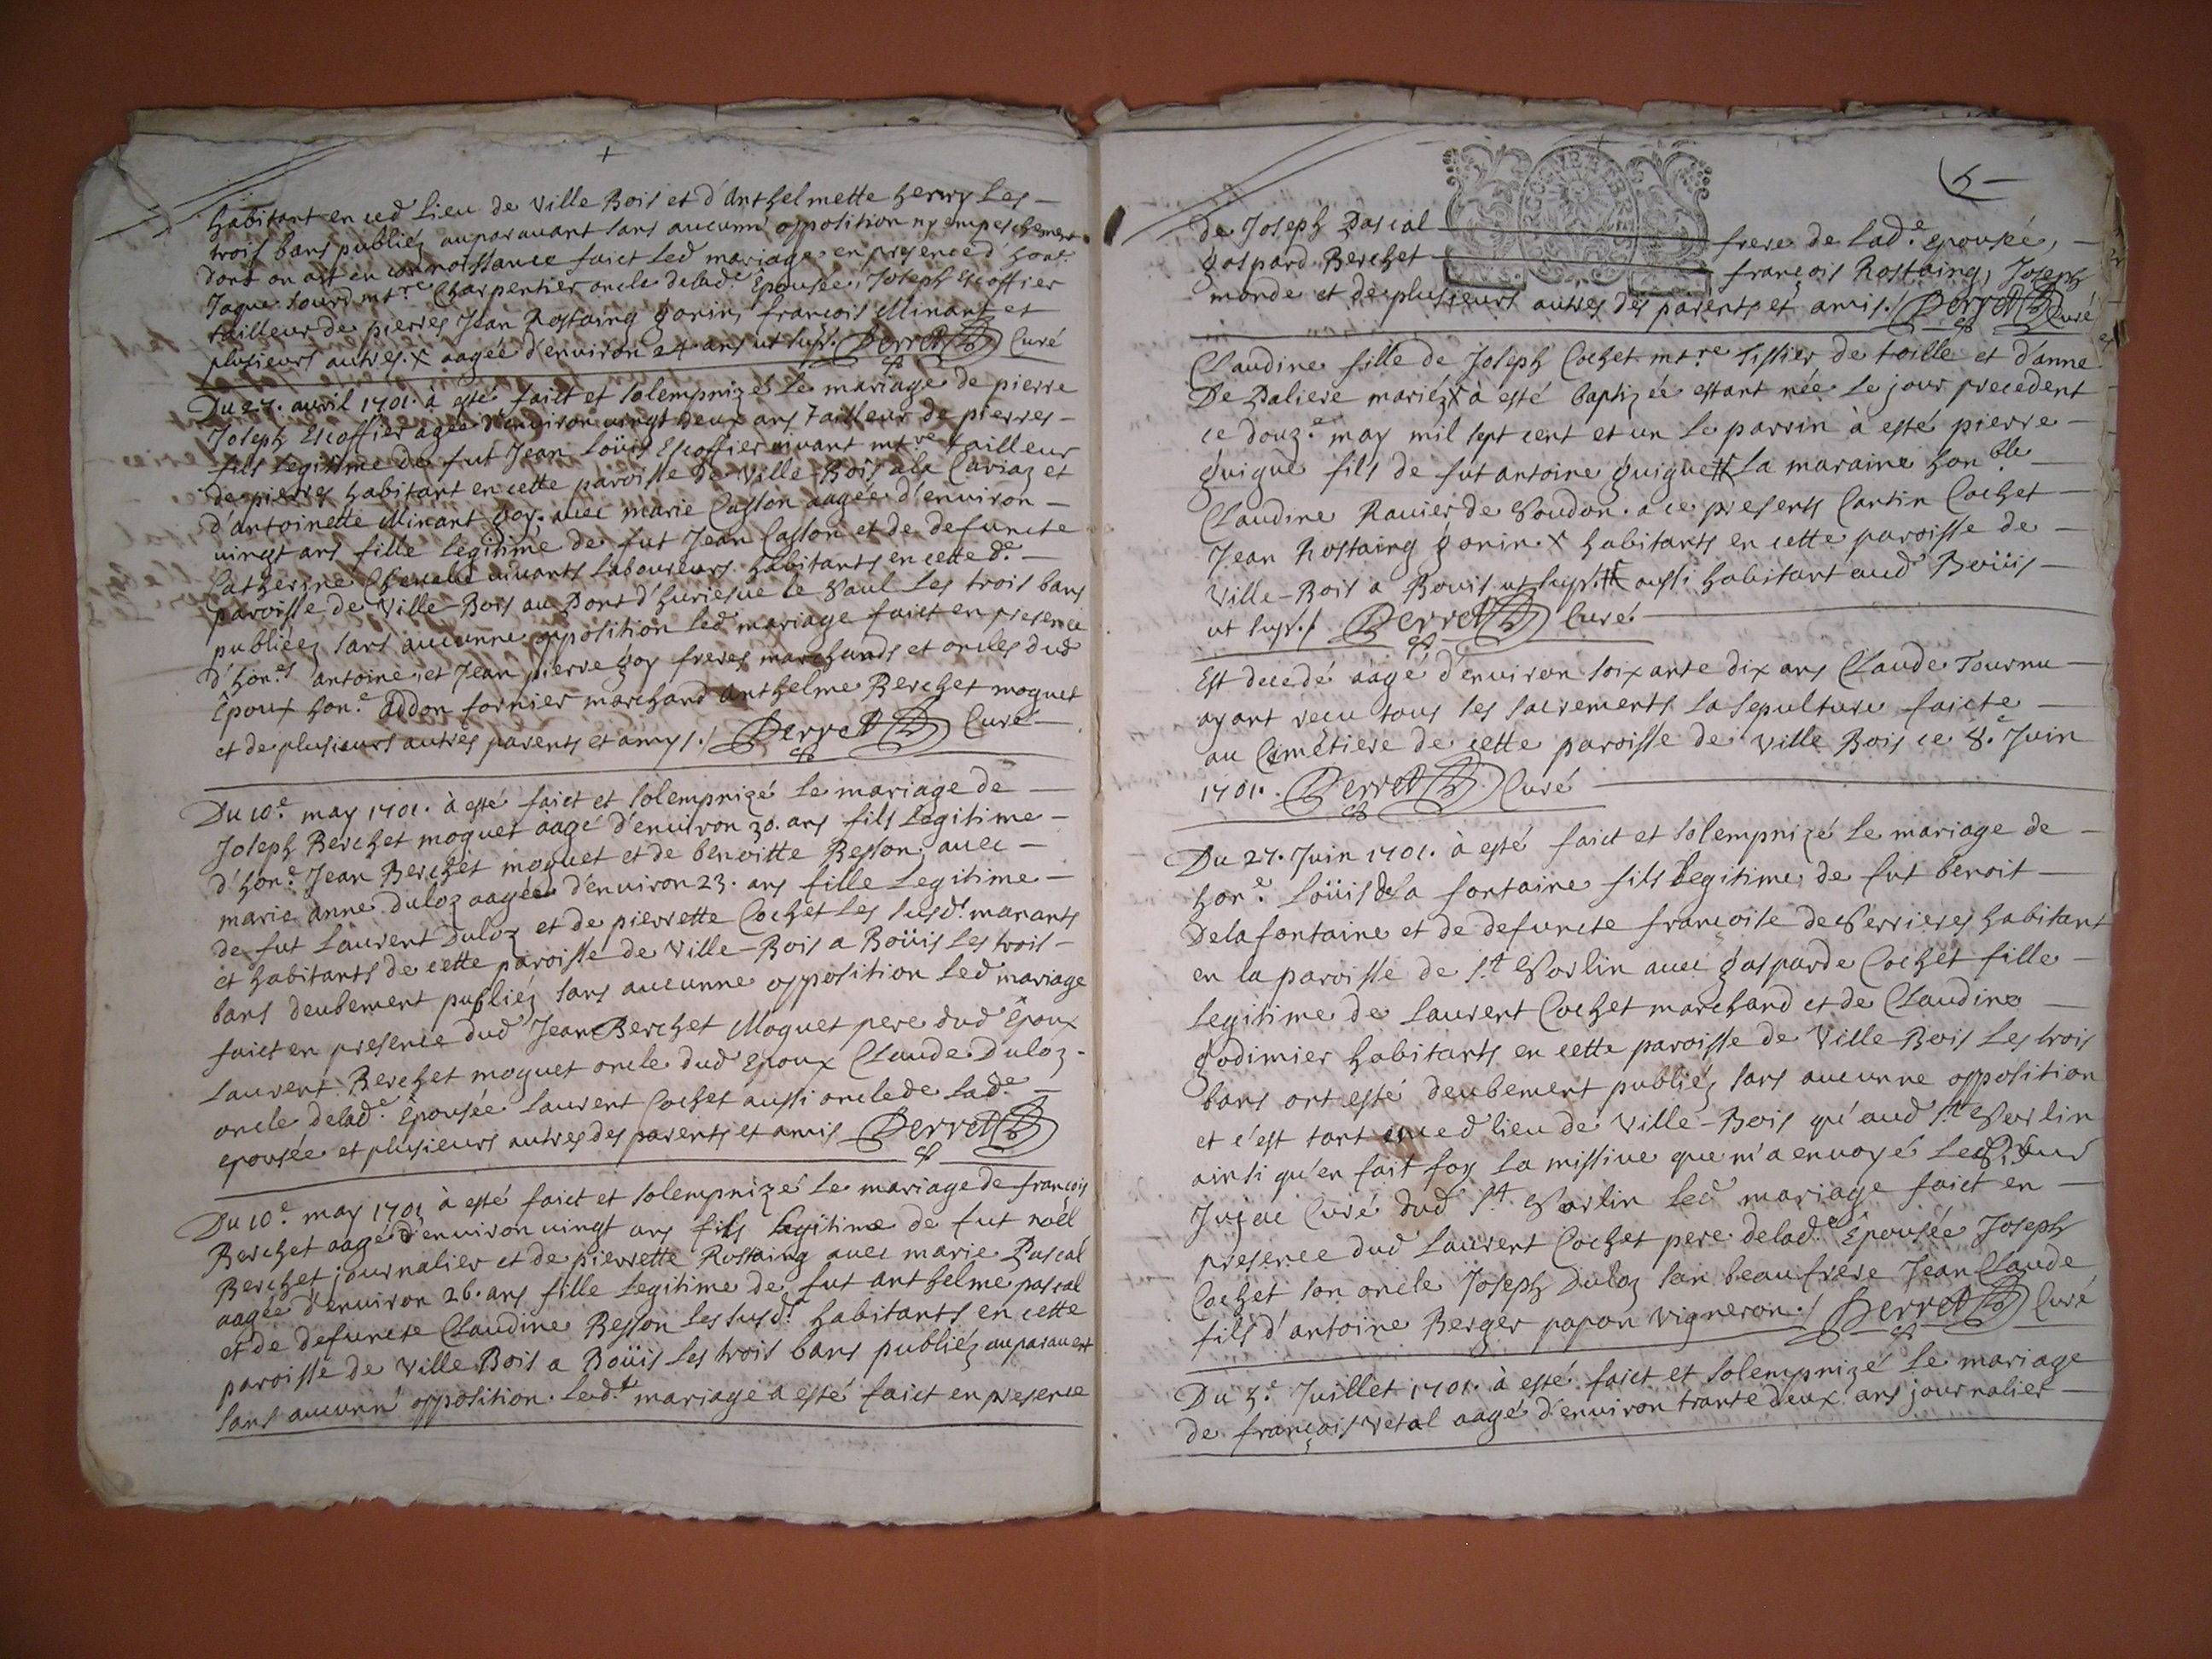 +
habitant en ced lieu de Ville Bois et d'Anthelmette herny Les
trois bans publiéz auparavant sans aucunne opposition ny empeschement
dont on ait eu connoissance faict led mariage en presence d'hone
Jaque sourd mtre Charpentier oncle de lade Epousée, Joseph Escoffier
tailleur de pierres Jean Rostaing gonin, françois Minant et
plusieurs autres. x aagée d'environ 24 ans ut supr. Perret Curé
Du 27. avril 1701. à esté faict et solempnizé le mariage de pierre
Joseph Escoffier agée d'environ vingt deux ans Tailleur de pierres
fils legitime de fut Jean Loüis Escoffier vivant mtre tailleur
de pierres habitant en cette paroisse de Ville-Bois a la Cariaz et
d'antoinette Minant goy. avec marie Casson aagée d'environ
vingt ans fille legitime de fut Jean Casson et de defuncte
Catherine vivants laboureurs habitants en cette de
paroisse de Ville-Bois au Pont d'hurieu le Saul Les trois bans
publiéez sans aucunne opposition led mariage faict en presence
d'hones antoine et Jean pierre goy freres marchands et oncles dud
Epoux hone addon fornier marchand anthelme Berchet moguet
et de plusieurs autres parents et amys ./ Perret Curé
Du 10e may 1701. à esté faict et solempnizé Le mariage de
Joseph Berchet moguet aagé d'environ 30. ans fils Legitime
d'hone Jean Berchet moguet et de benoitte Besson. avec
marie anne duloz aagée d'environ 23. ans fille Legitime
de fut Laurent Duloz et de pierrette Cochet Les susds manants
et habitants de cette paroisse de Ville-Bois a Boüis Les trois
bans deubement publiéz sans aucunne opposition Led mariage
faict en presence dud Jean Berchet Moguet pere dud Epoux
Laurent Berchet moguet oncle dud Epoux Claude Duloz
oncle de lade Epousée Laurent Cochet aussi oncle de Lade
epousée et plusieurs autres des parents et amis Perret
Du 10e may 1701 à esté faict et solempnizé Le mariage de françois
Berchet aagé d'environ vingt ans fils Legitime de fut noël
Berchet journalier et de pierrette Rostaing avec marie Pascal
aagée d'environ 26. ans fille Legitime de fut anthelme pascal
et de defuncte Claudine Besson Les susds habitants en cette
paroisse de Ville Bois a Boüis Les trois bans publiéz auparavent
sans aucunne opposition. Ledt mariage a esté faict en presence
5
de Joseph Pascal frere de Lade epousée,
gaspard Berchet françois Rostaing, Joseph
monde et de plusieurs autres des parents et amis./ Perret Curé
Claudine fille de Joseph Cochet mtre Tissier de toille et d'anne
De Daliere mariéz x à esté baptizée estant née Le jour precedent
ce douze may mil sept cent et un Le parrin à esté pierre
guigue fils de fut antoine guigue # La maraine honble
Claudine Ravier de Soudon. a ce presents Cartin Cochet
Jean Rostaing gonin x habitants en cette paroisse de
Ville-Bois a Bouis ut supr. # aussi habitant aud Boüis
ut supr./ Perret Curé.
Est decedé aagé d'environ soixante dix ans Claude Tournu
ayant recu tous les sacrements La sepulture faicte
au Cimetiere de cette paroisse de Ville Bois ce 8.e Juin
1701. Perret Curé
Du 27. Juin 1701. à esté faict et solempnizé Le mariage de
hone Loüis de La fontaine fils Legitime de fut benoit
Delafontaine et de defuncte françoise de Perrieres habitant
en la paroisse de St Sorlin avec gasparde Cochet fille
Legitime de Laurent Cochet marchand et de Claudine
godimier habitants en cette paroisse de Ville-Bois Les trois
bans ont esté deubement publiéz sans aucunne opposition
et c'est tant en ced lieu de Ville-Bois qu'aud St Sorlin
ainsi qu'en fait foy La missive que m'a envoyé Led
Curé dud St Sorlin Led mariage faict en
presence dud Laurent Cochet pere de lade Epousée Joseph
Cochet son oncle Joseph Duloz son beaufrere Jean Claude
fils d'antoine Berger papon vigneron ./ Perret Curé
Du 3.e Juillet 1701. à esté faict et solempnizé Le mariage
de françois vetal aagé d'environ trante deux ans journalier